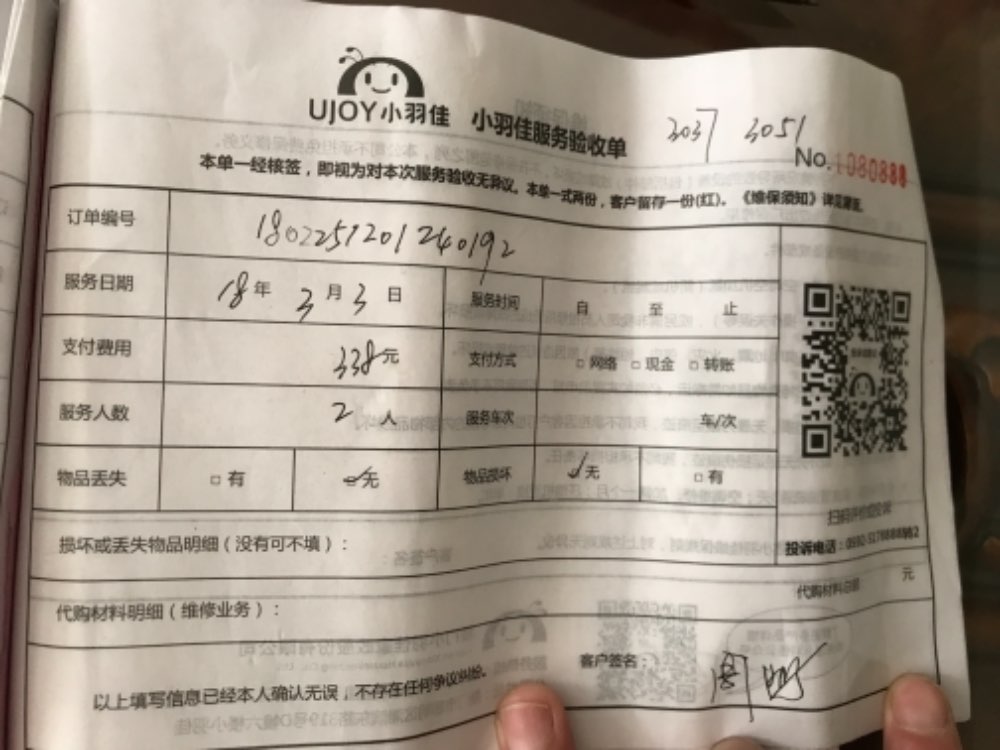 UJOY小羽佳 小羽佳服务验收单 3037 3051
No.1080888
本单一经核签，即视为对本次服务验收无异议。本单一式两份，客户留存一份(红)。《维保须知》详见背面
订单编号 180225120124​0192
服务日期 18年3月3日 服务时间 自 至 止
支付费用 338元 支付方式 □网络 □现金 □转账
服务人数 2人 服务车次 车/次
物品丢失 □有 ☑无 物品损坏 ☑无 □有
扫码评价
损坏或丢失物品明细（没有可不填）：
投诉电话：0592-
代购材料明细（维修业务）： 代购材料总额 元
客户签名：周
以上填写信息已经本人确认无误，不存在任何争议纠纷。